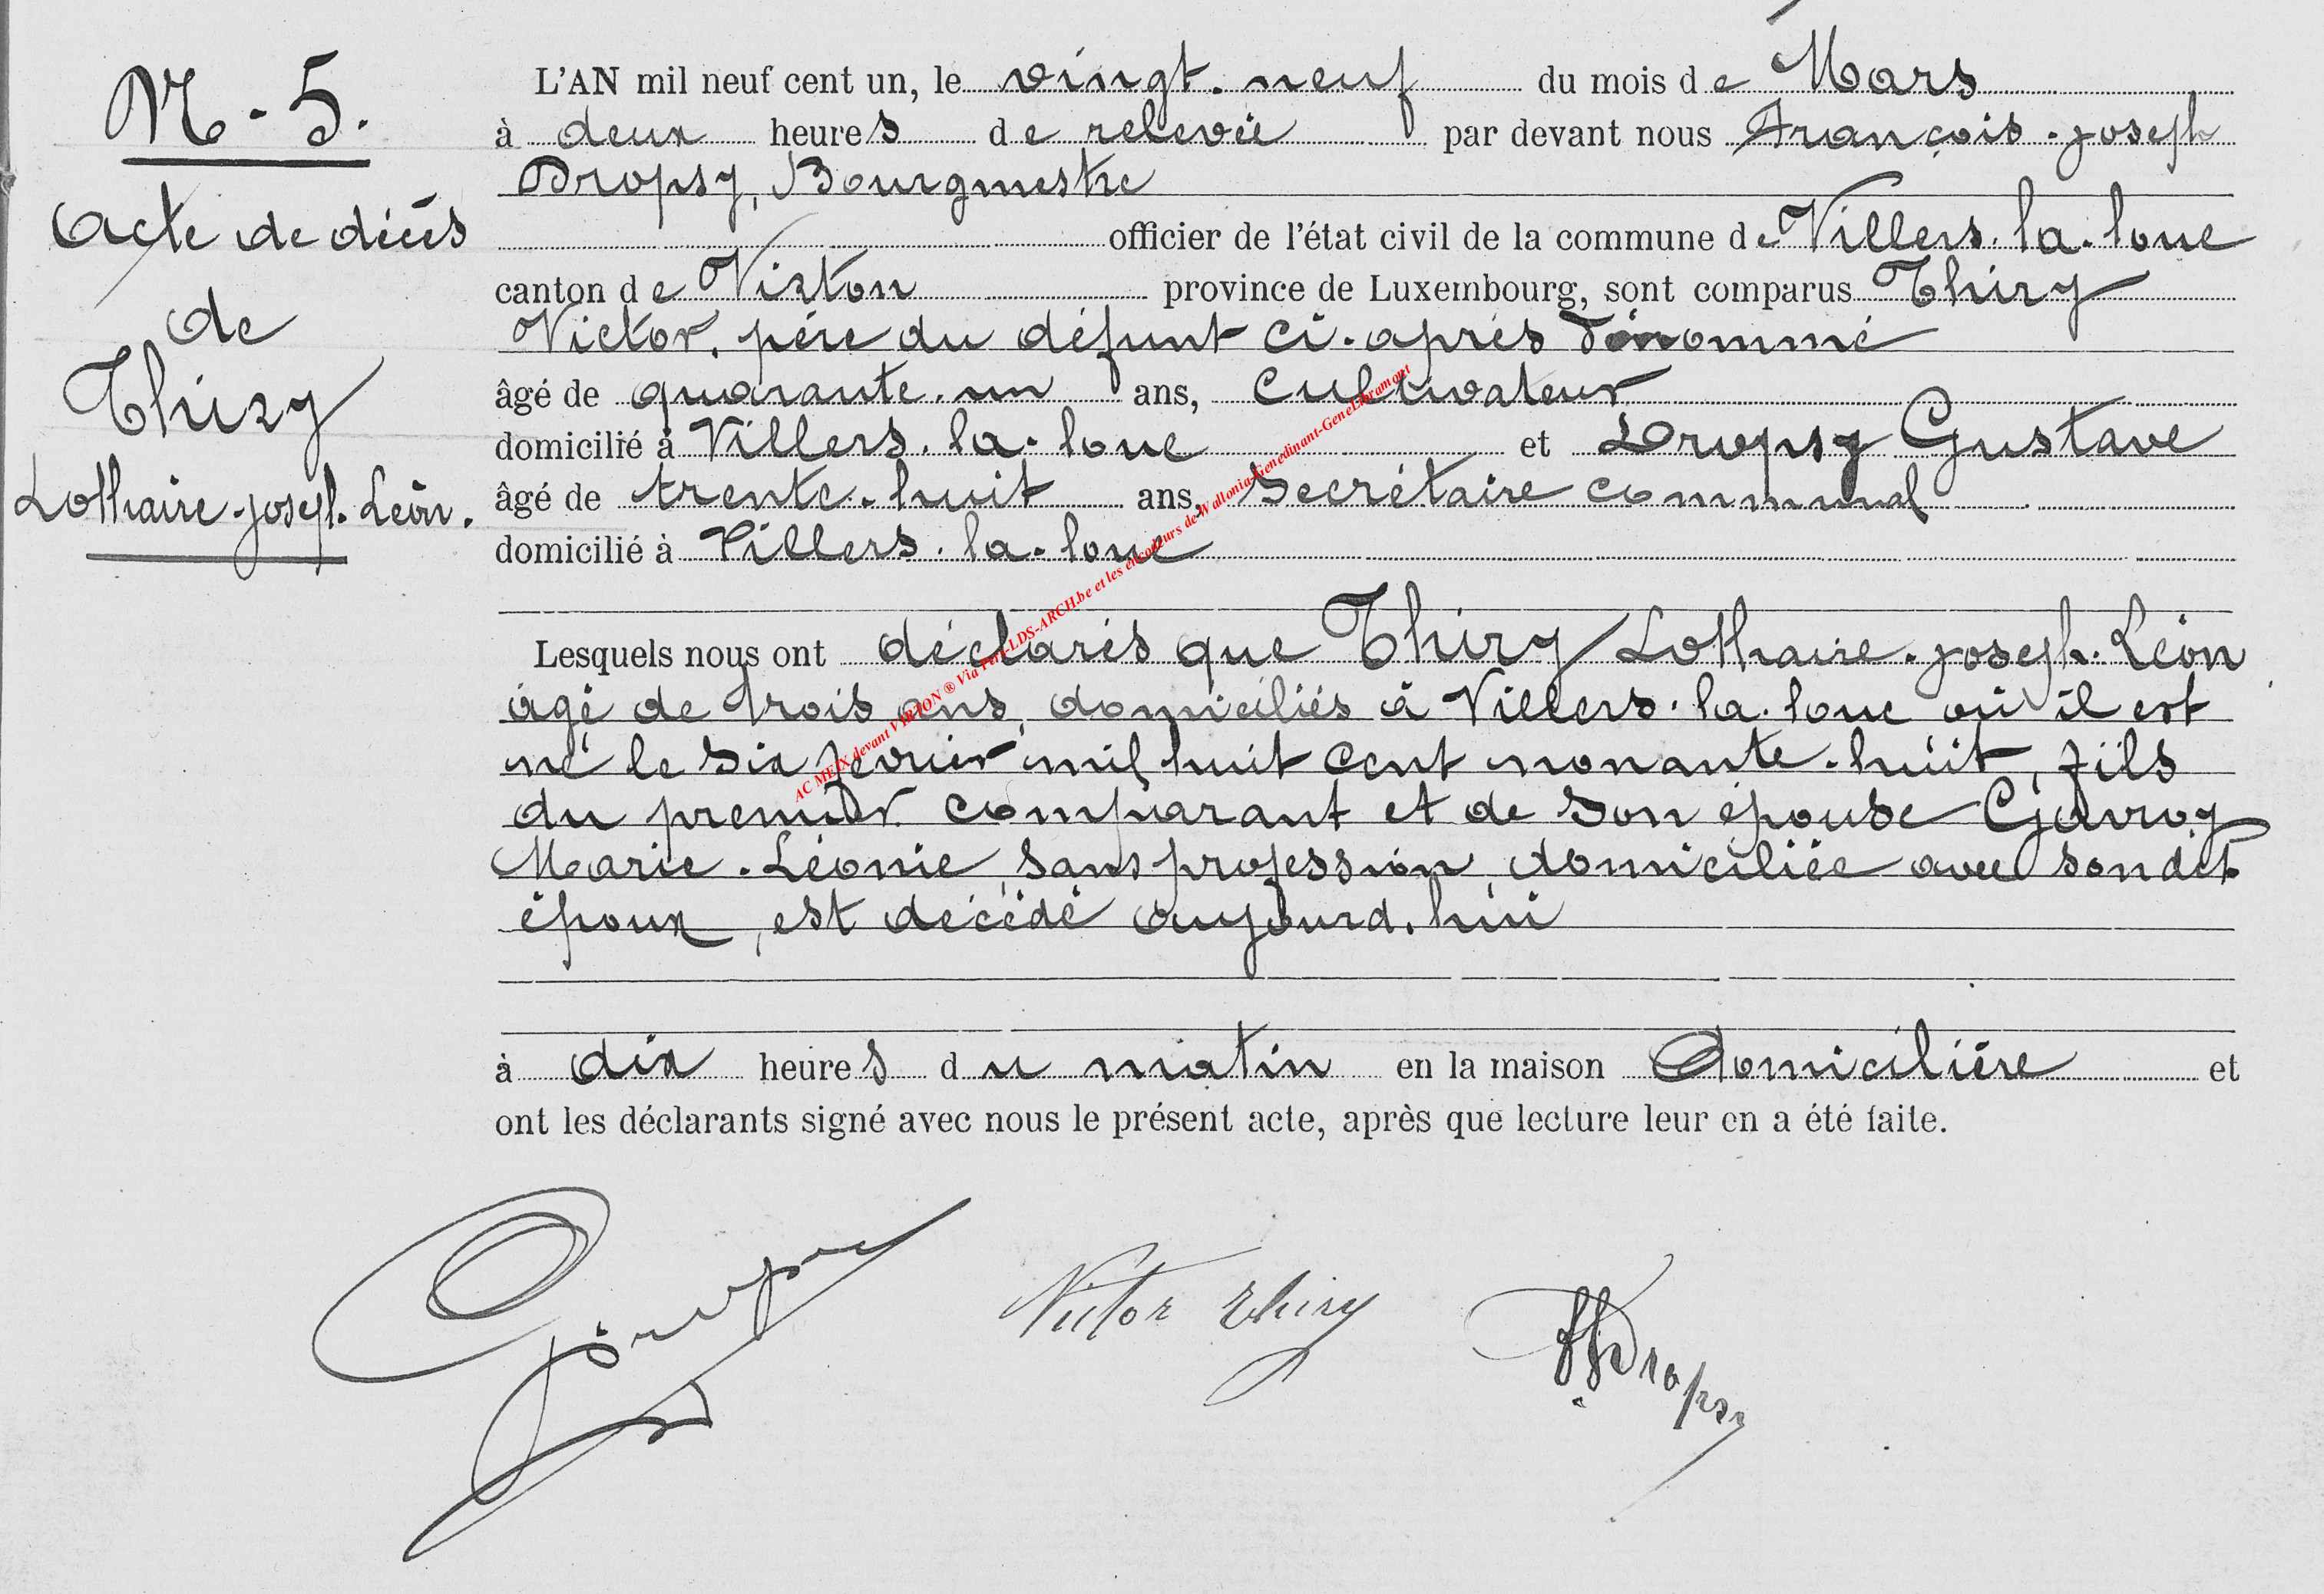 N. 5.
Acte de décès
de
Thiry
Lothaire-Joseph-Léon.
L'AN mil neuf cent un, le vingt-neuf du mois de Mars
à deux heures de relevée par devant nous François-Joseph
Dropsy, Bourgmestre
officier de l'état civil de la commune de Villers-la-loue
canton de Virton province de Luxembourg, sont comparus Thiry
Victor, père du défunt ci-après dénommé
âgé de quarante-un ans, cultivateur
domicilié à Villers-la-loue et Dropsy Gustave
âgé de trente-huit ans, Secrétaire communal
domicilié à Villers-la-loue
Lesquels nous ont déclarés que Thiry Lothaire-Joseph-Léon
âgé de trois ans, domiciliés à Villers-la-loue où il est
né le six février mil huit cent nonante-huit, fils
du premier comparant et de son épouse Gavroy
Marie-Léonie, sans profession, domiciliée avec son dit
époux, est décédé aujourd'hui
à dix heures du matin en la maison Domicilière et
ont les déclarants signé avec nous le présent acte, après que lecture leur en a été faite.
AC MEIX devant VIRTON ® Via Fern-LDS-ARCH.be et les encodeurs de Wallonia-Genedinant-GeneLibramont
GDropsy Victor Thiry FJDropsy